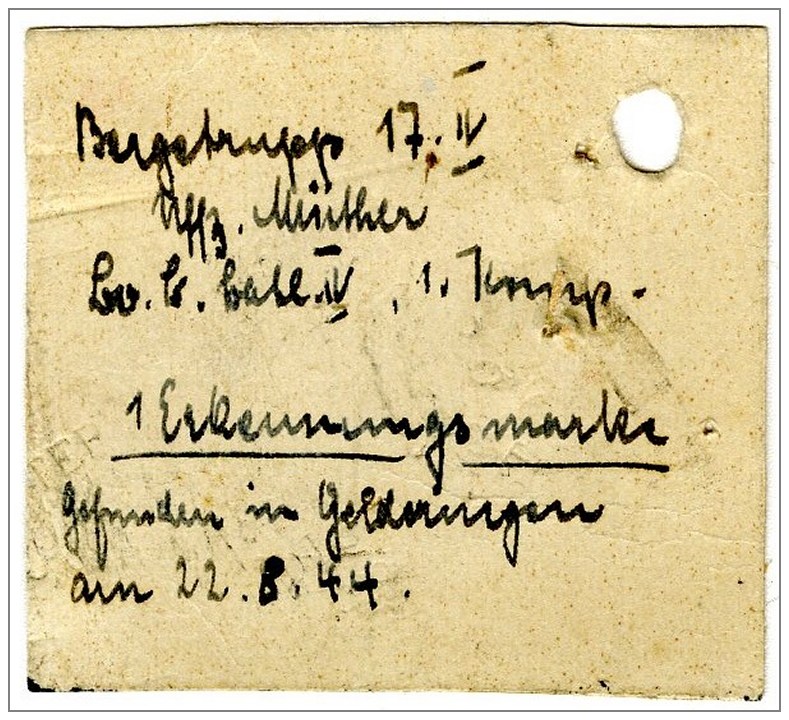 Bergetrupp 17. IV
Uffz. Müther
Lw. B. Batl. IV, 1. Komp.
1 Erkennungsmarke
gefunden in Gelderingen
am 22.8.44.